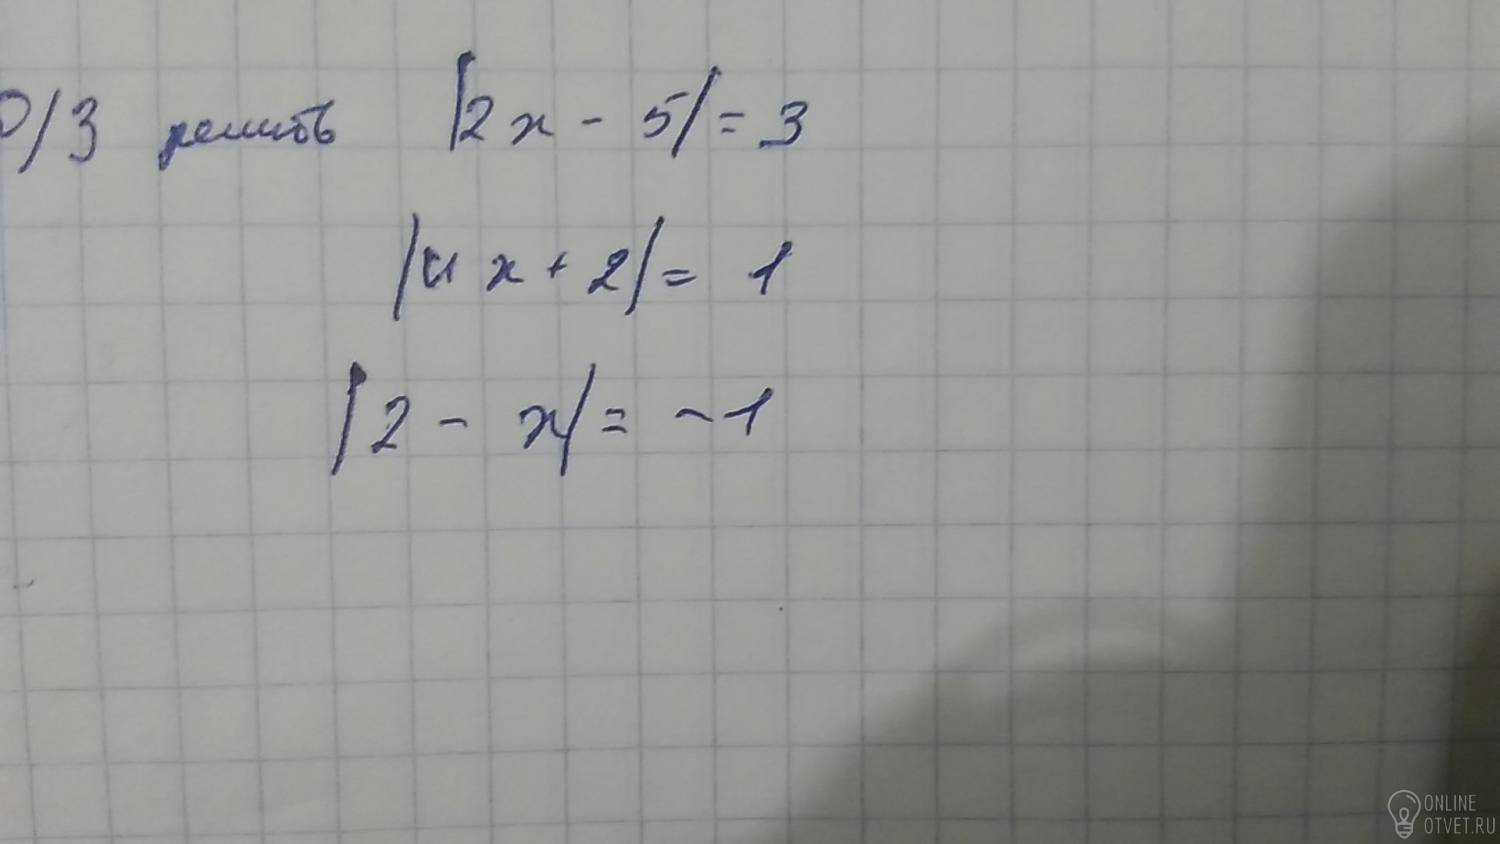 D/З решить |2x - 5| = 3
|4x + 2| = 1
|2 - x| = -1
ONLINE
OTVET.RU